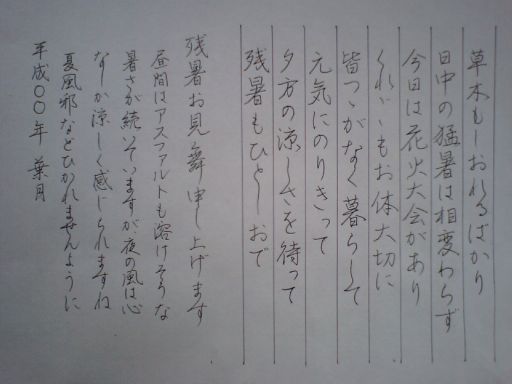 草木もしおれるばかり
日中の猛暑は相変わらず
今日は花火大会があり
くれぐれもお体大切に
皆つつがなく暮らして
元気にのりきって
夕方の涼しさを待って
残暑もひとしおで
残暑お見舞申し上げます
昼間はアスファルトも溶けそうな
暑さが続いていますが夜の風は心
なしか涼しく感じられますね
夏風邪などひかれませんように
平成〇〇年 葉月